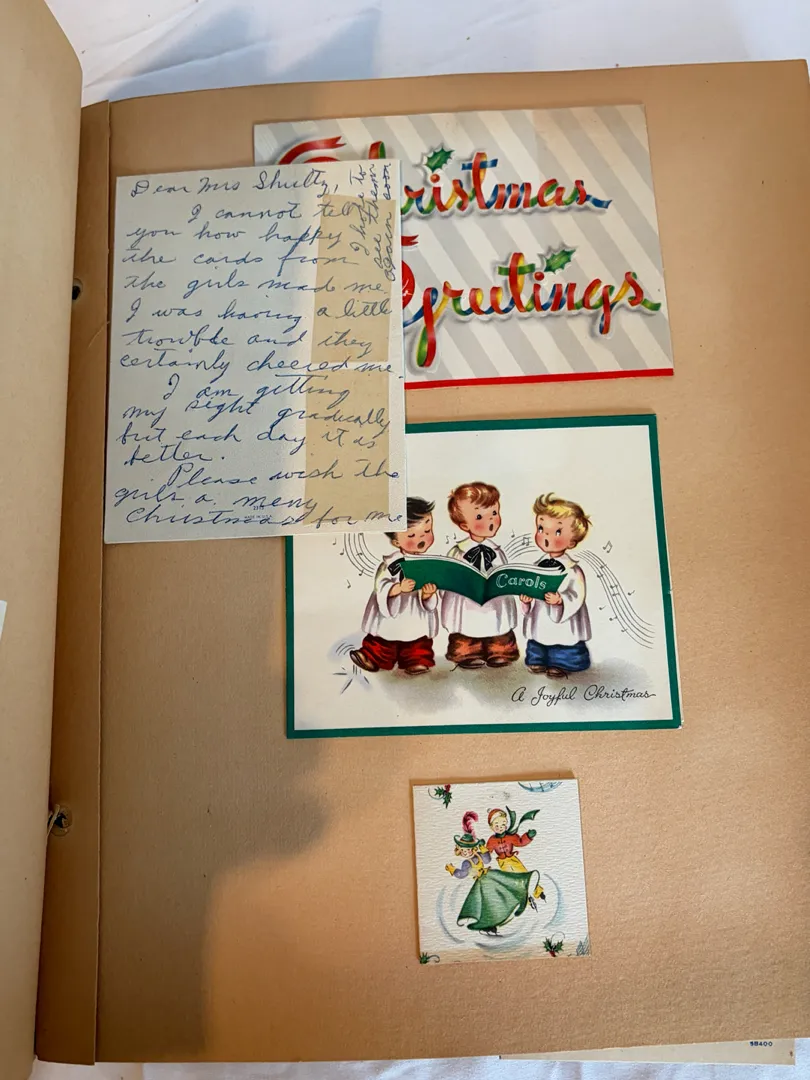 Dear Mrs Shultz,
I cannot tell
you how happy
the cards from
the girls made me.
I was having a little
trouble and they
certainly cheered me.
I am getting
my sight gradually
but each day it is
better.
Please wish the
girls a merry
Christmas for me
I hope to
see them
again soon
Christmas
Greetings
Carols
A Joyful Christmas
SB400